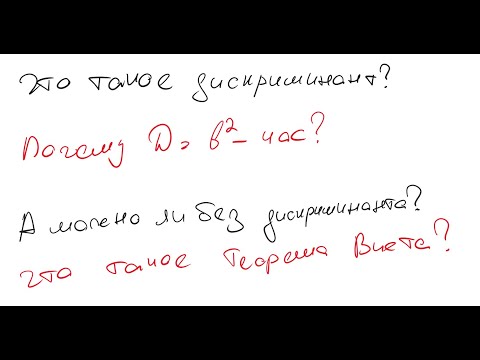 Что такое дискриминант?
Почему D = b² - 4ac?
А можно ли без дискриминанта?
Что такое Теорема Виета?